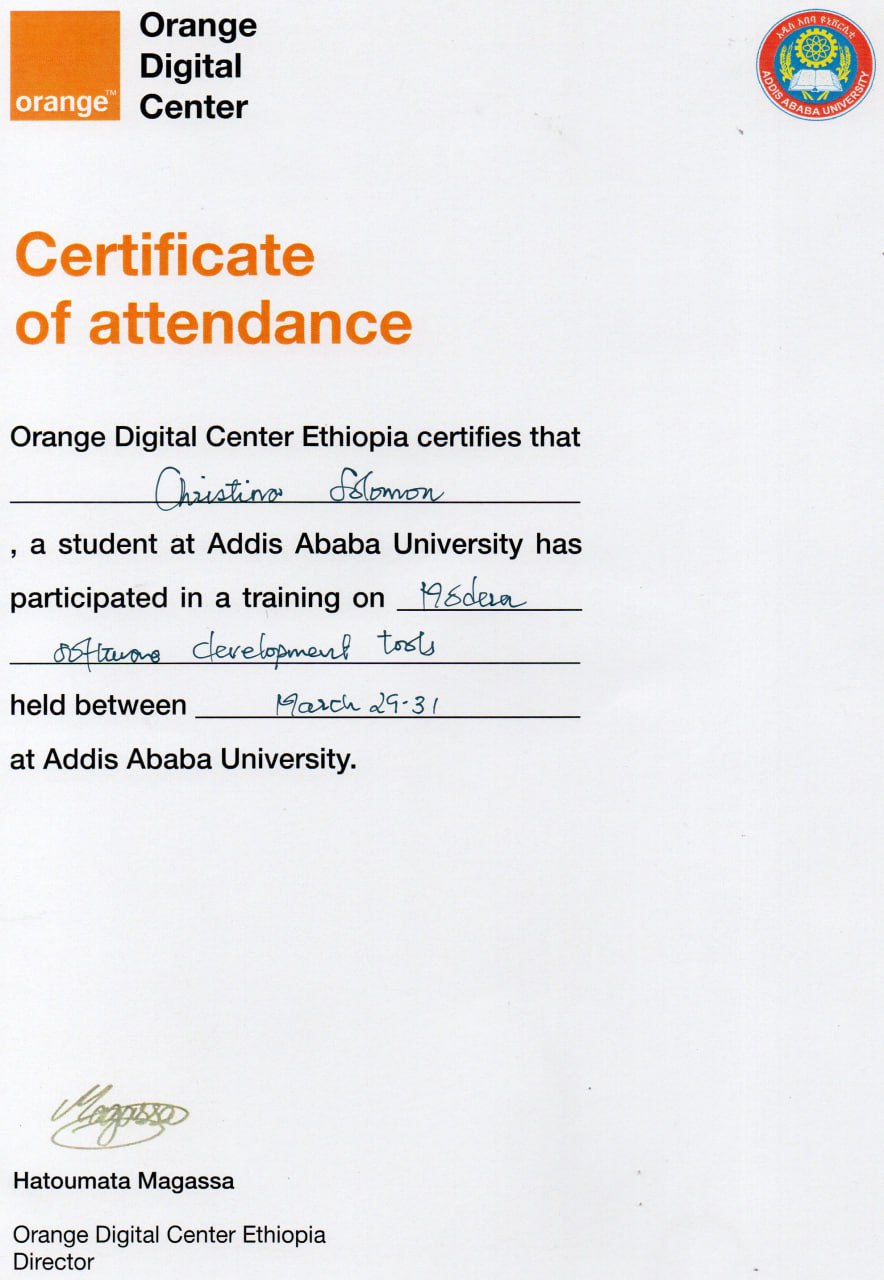 orange™
Orange
Digital
Center
አዲስ አበባ ዩኒቨርሲቲ
ADDIS ABABA UNIVERSITY
Certificate
of attendance
Orange Digital Center Ethiopia certifies that
Christina Solomon
, a student at Addis Ababa University has
participated in a training on Modern
software development tools
held between March 29-31
at Addis Ababa University.
Magassa
Hatoumata Magassa
Orange Digital Center Ethiopia
Director